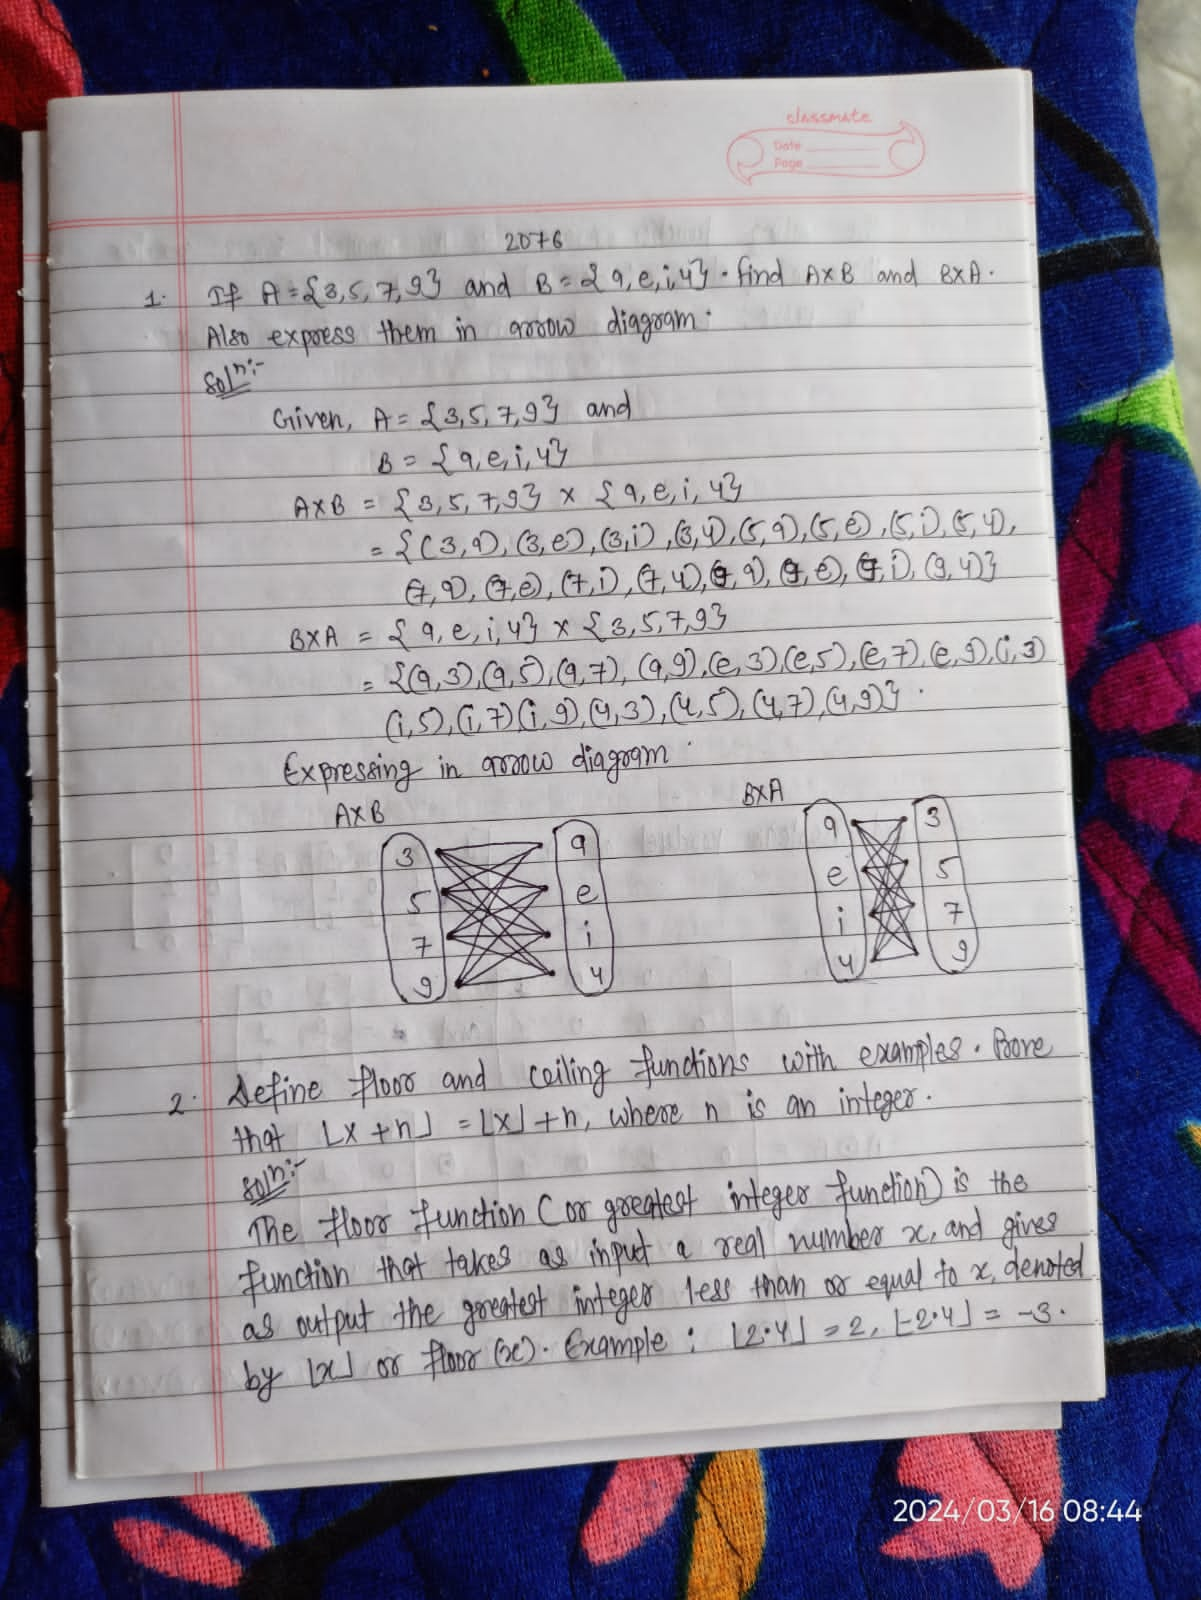 classmate
Date
Page
2076
1. If A = {3, 5, 7, 9} and B = {a, e, i, u}. find A×B and B×A.
Also express them in arrow diagram.
Solⁿ:-
Given, A = {3, 5, 7, 9} and
B = {a, e, i, u}
A×B = {3, 5, 7, 9} × {a, e, i, u}
= {(3, a), (3, e), (3, i), (3, u), (5, a), (5, e), (5, i), (5, u),
(7, a), (7, e), (7, i), (7, u), (9, a), (9, e), (9, i), (9, u)}
B×A = {a, e, i, u} × {3, 5, 7, 9}
= {(a, 3), (a, 5), (a, 7), (a, 9), (e, 3), (e, 5), (e, 7), (e, 9), (i, 3)
(i, 5), (i, 7) (i, 9), (u, 3), (u, 5), (u, 7), (u, 9)}.
Expressing in arrow diagram.
A×B B×A
3 a a 3
5 e e 5
7 i i 7
9 u u 9
2. Define floor and ceiling functions with examples. Prove
that ⌊x + n⌋ = ⌊x⌋ + n, where n is an integer.
Solⁿ:-
The floor function (or greatest integer function) is the
function that takes as input a real number x, and gives
as output the greatest integer less than or equal to x, denoted
by ⌊x⌋ or floor (x). Example : ⌊2.4⌋ = 2, ⌊-2.4⌋ = -3.
2024/03/16 08:44